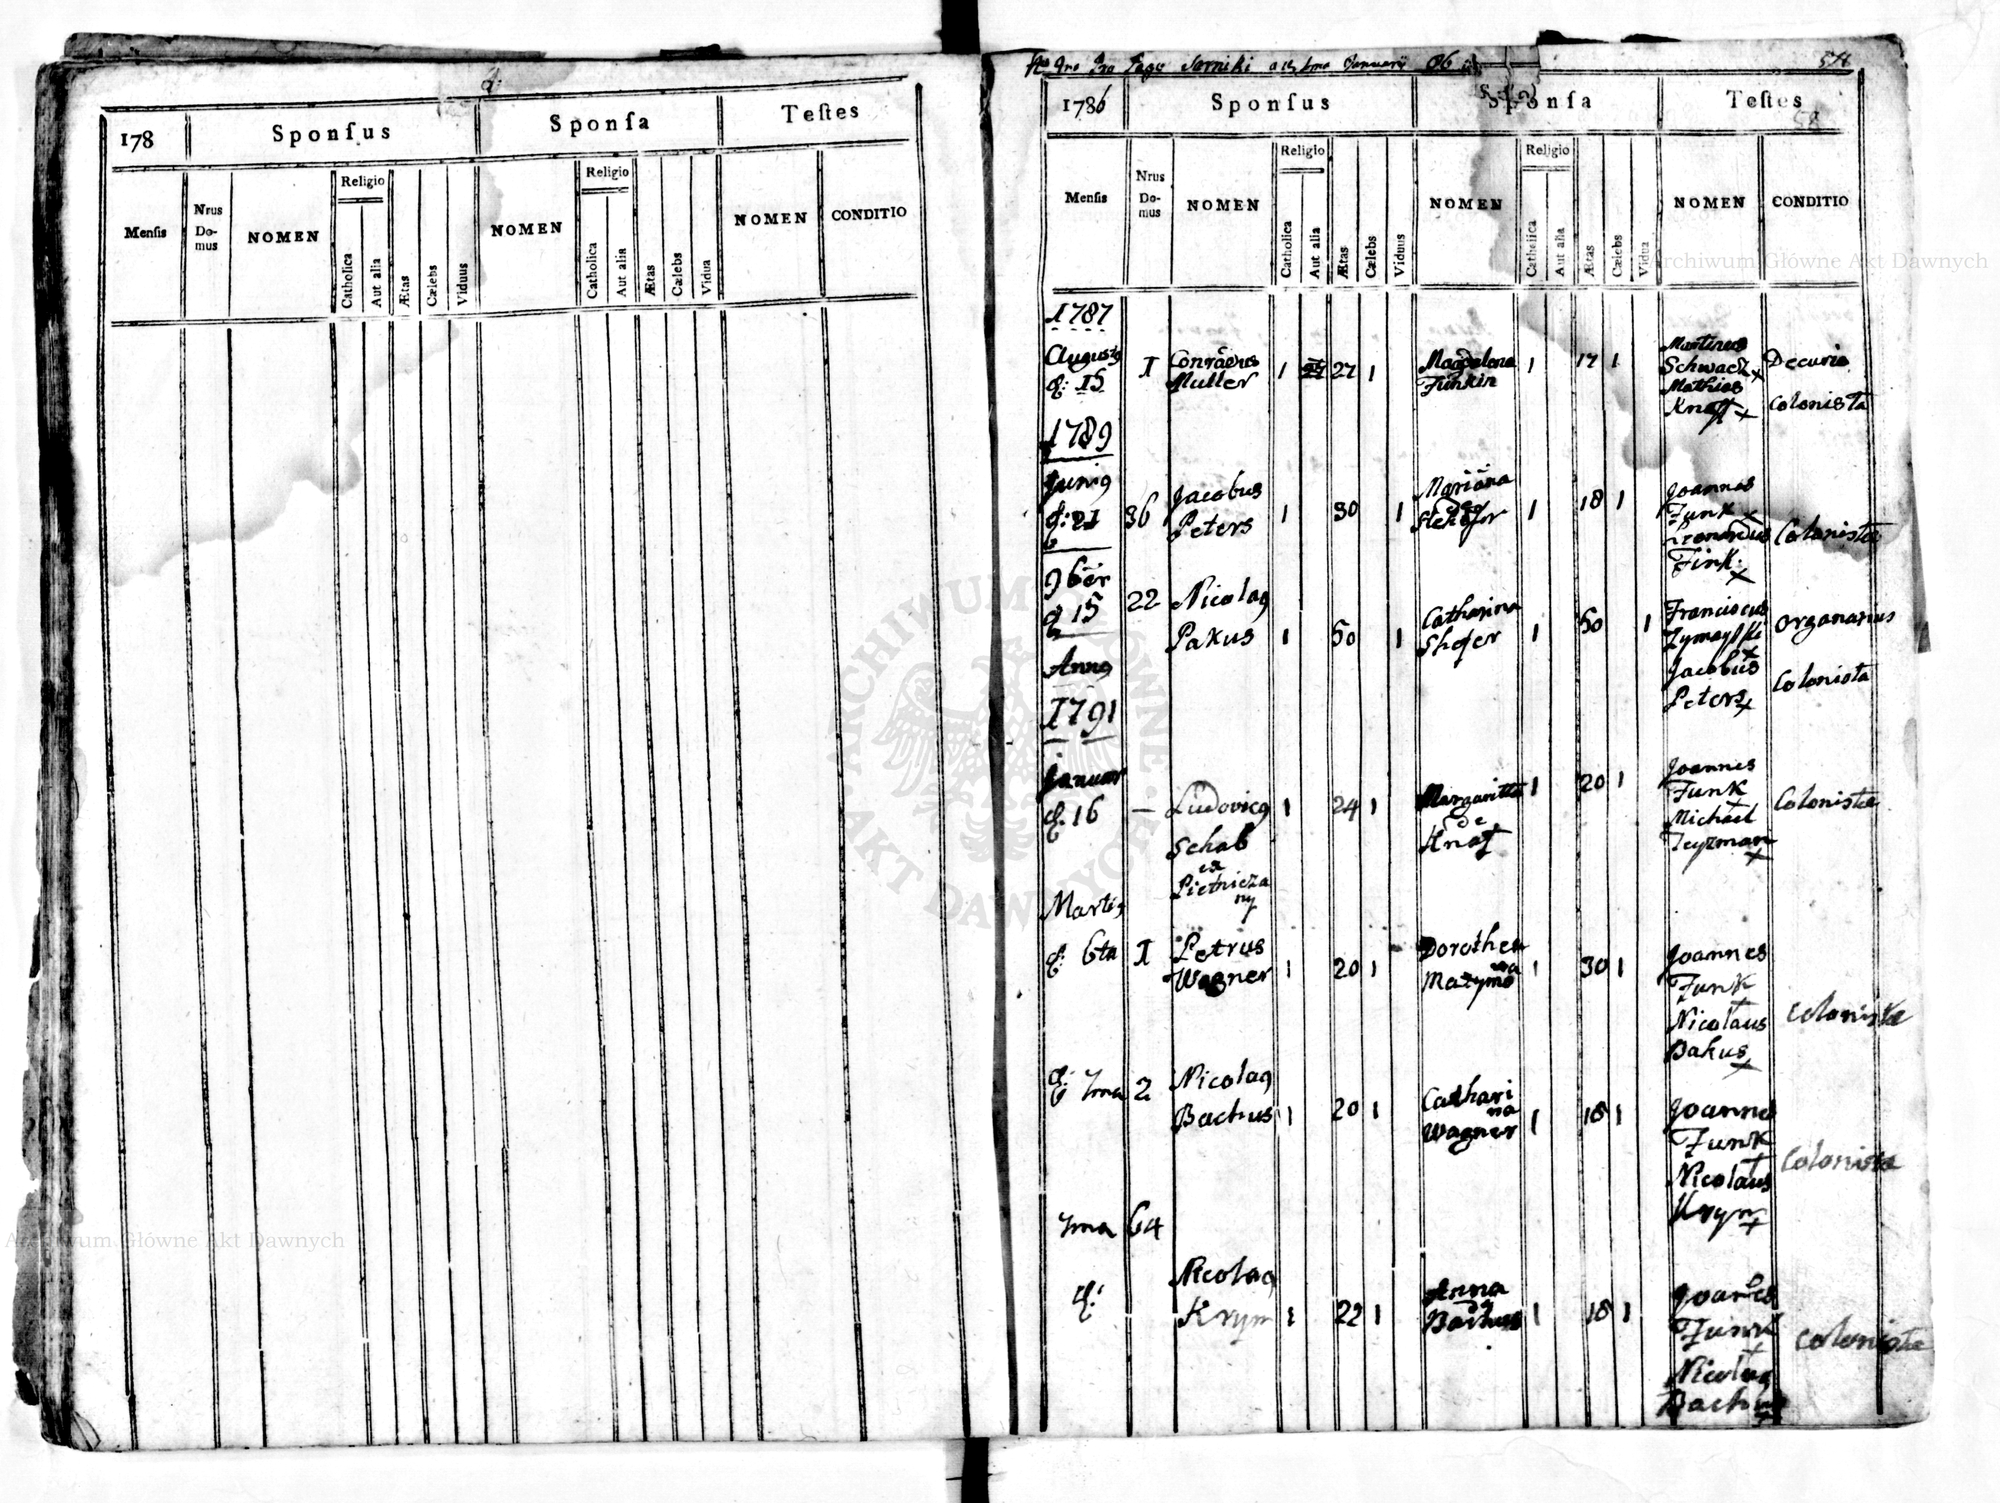 178
Sponſus
Sponſa
Teſtes
Menſis
Nrus Do-mus
NOMEN
Religio
Catholica
Aut alia
Ætas
Cælebs
Viduus
NOMEN
Religio
Catholica
Aut alia
Ætas
Cælebs
Vidua
NOMEN
CONDITIO
Pro Pago Sarniki a 1ma Januarii 86
578
1786
Sponſus
Sponſa
Teſtes
58
Menſis
Nrus Do-mus
NOMEN
Religio
Catholica
Aut alia
Ætas
Cælebs
Viduus
NOMEN
Religio
Catholica
Aut alia
Ætas
Cælebs
Vidua
NOMEN
CONDITIO
1787
Augustg d: 15
1
Conradus Muller
1
27
1
Magdalena Funkin
1
17
1
Martinus Schwartz x
Decurio
Mathias Knaff x
Colonista
1789
Junig d: 21
36
Jacobus Peters
1
30
1
Marianna de Shefer
1
18
1
Joannes Funk x
Leonardus Fink x
Colonistae
9bēr d 15
22
Nicolag Pakus
1
50
1
Catharina Shefer
1
50
1
Franciscus x
Organarius
Jacobus Peters x
Colonista
Anno
1791
Januar d: 16
—
Ludovicg Schab ex Pietniczany
1
24
1
Margaritta de Knaf
1
20
1
Joannes Funk
Michael Teyzman x
Colonistae
Martig
d: 6ta
1
Petrus Wagner
1
20
1
Dorothea
1
30
1
Joannes Funk
Nicolaus Bakus x
Colonistae
d: 7ma
2
Nicolag Bachus
1
20
1
Catharina Wagner
1
18
1
Joannes Funk
Nicolaus Krym x
Colonistae
7ma
64
d:
Nicolag Krym
1
22
1
Anna de Bachus
1
18
1
Joannes Funk
Nicolag Bachus x
Colonistae
Archiwum Główne Akt Dawnych
ARCHIWUM GŁÓWNE · AKT DAWNYCH ·
Archiwum Główne Akt Dawnych